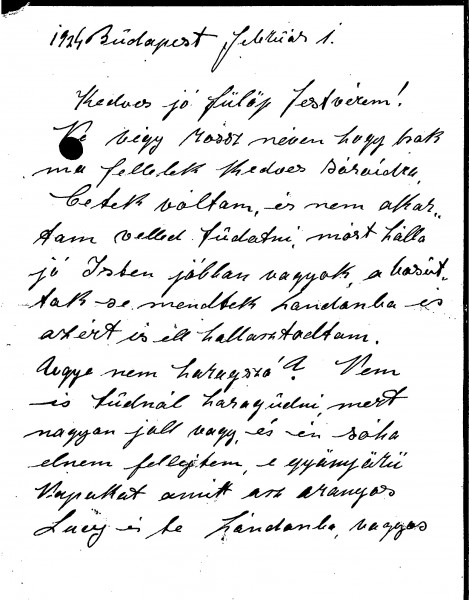 1924 Búdapest Február 1.
Kedves jó Fülöp Testvérem!
Ne végy rossz néven hogy csak
ma fellelek Kedves Soraidra,
Betek vóltam, és nem akar-
tam velled túdatni, most hálla
jó Isten jóbban vagyok, a
tak se mendtek Londonba és
azért is ell hallasztodtam.
Úgye nem haragszó? Nem
is túdnál haragúdni, mert
nagyon jóll vagy, és én sóha
elnem fellejtem, e gyönyörű
Napakat amitt asz aranyos
Lucy és te Londonba, vagyos